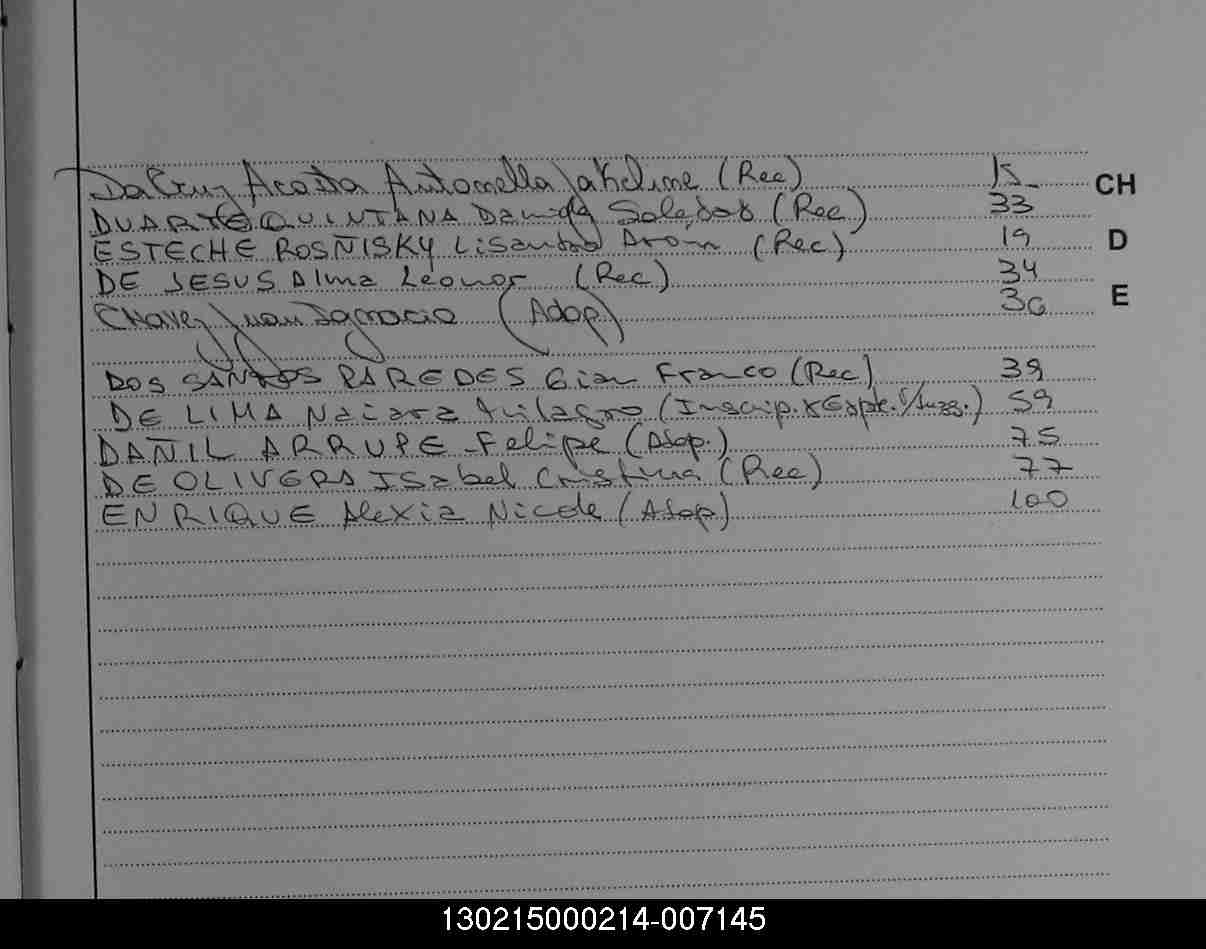 Da Cruz Acosta Antonella Jakeline (Rec) 15
CH
DUARTE QUINTANA Daniela Soledad (Rec) 33
ESTECHE ROSÑISKY Lisandro Arón (Rec) 19
D
DE JESUS Alma Leonor (Rec) 34
Chavez Juan Ignacio (Adop.) 36
E
DOS SANTOS PAREDES Gian Franco (Rec) 39
DE LIMA Naiara Milagro (Inscrip. x Expte. /Juzg.) 59
DAÑIL ARRUPE Felipe (Adop.) 75
DE OLIVERA Isabel Cristina (Rec) 77
ENRIQUE Alexia Nicole (Adop) 100
130215000214-007145